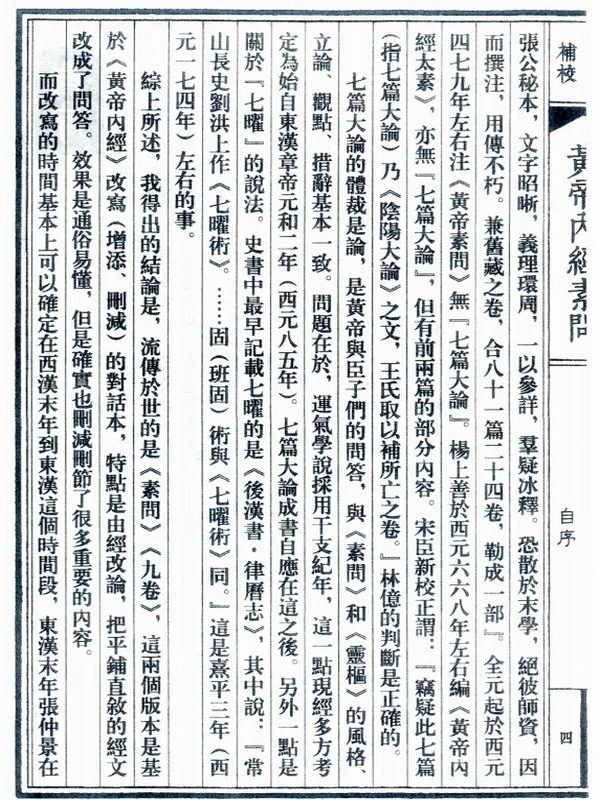 補校
黃帝內經素問
自序
四
張公秘本，文字昭晰，義理環周，一以參詳，羣疑冰釋。恐散於末學，絕彼師資，因
而撰注，用傳不朽。兼舊藏之卷，合八十一篇二十四卷，勒成一部』。全元起於西元
四七九年左右注《黃帝素問》無『七篇大論』。楊上善於西元六六八年左右編《黃帝內
經太素》，亦無『七篇大論』，但有前兩篇的部分內容。宋臣新校正謂：『竊疑此七篇
(指七篇大論)乃《陰陽大論》之文，王氏取以補所亡之卷。』林億的判斷是正確的。
七篇大論的體裁是論，是黃帝與臣子們的問答，與《素問》和《靈樞》的風格、
立論、觀點、措辭基本一致。問題在於，運氣學說採用干支紀年，這一點現經多方考
定為始自東漢章帝元和二年(西元八五年)。七篇大論成書自應在這之後。另外一點是
關於『七曜』的說法。史書中最早記載七曜的是《後漢書·律曆志》，其中說：『常
山長史劉洪上作《七曜術》。……固(班固)術與《七曜術》同。』這是熹平三年(西
元一七四年)左右的事。
綜上所述，我得出的結論是，流傳於世的是《素問》《九卷》，這兩個版本是基
於《黃帝內經》改寫(增添、刪減)的對話本，特點是由經改論，把平鋪直敘的經文
改成了問答。效果是通俗易懂，但是確實也刪減刪節了很多重要的內容。
而改寫的時間基本上可以確定在西漢末年到東漢這個時間段，東漢末年張仲景在